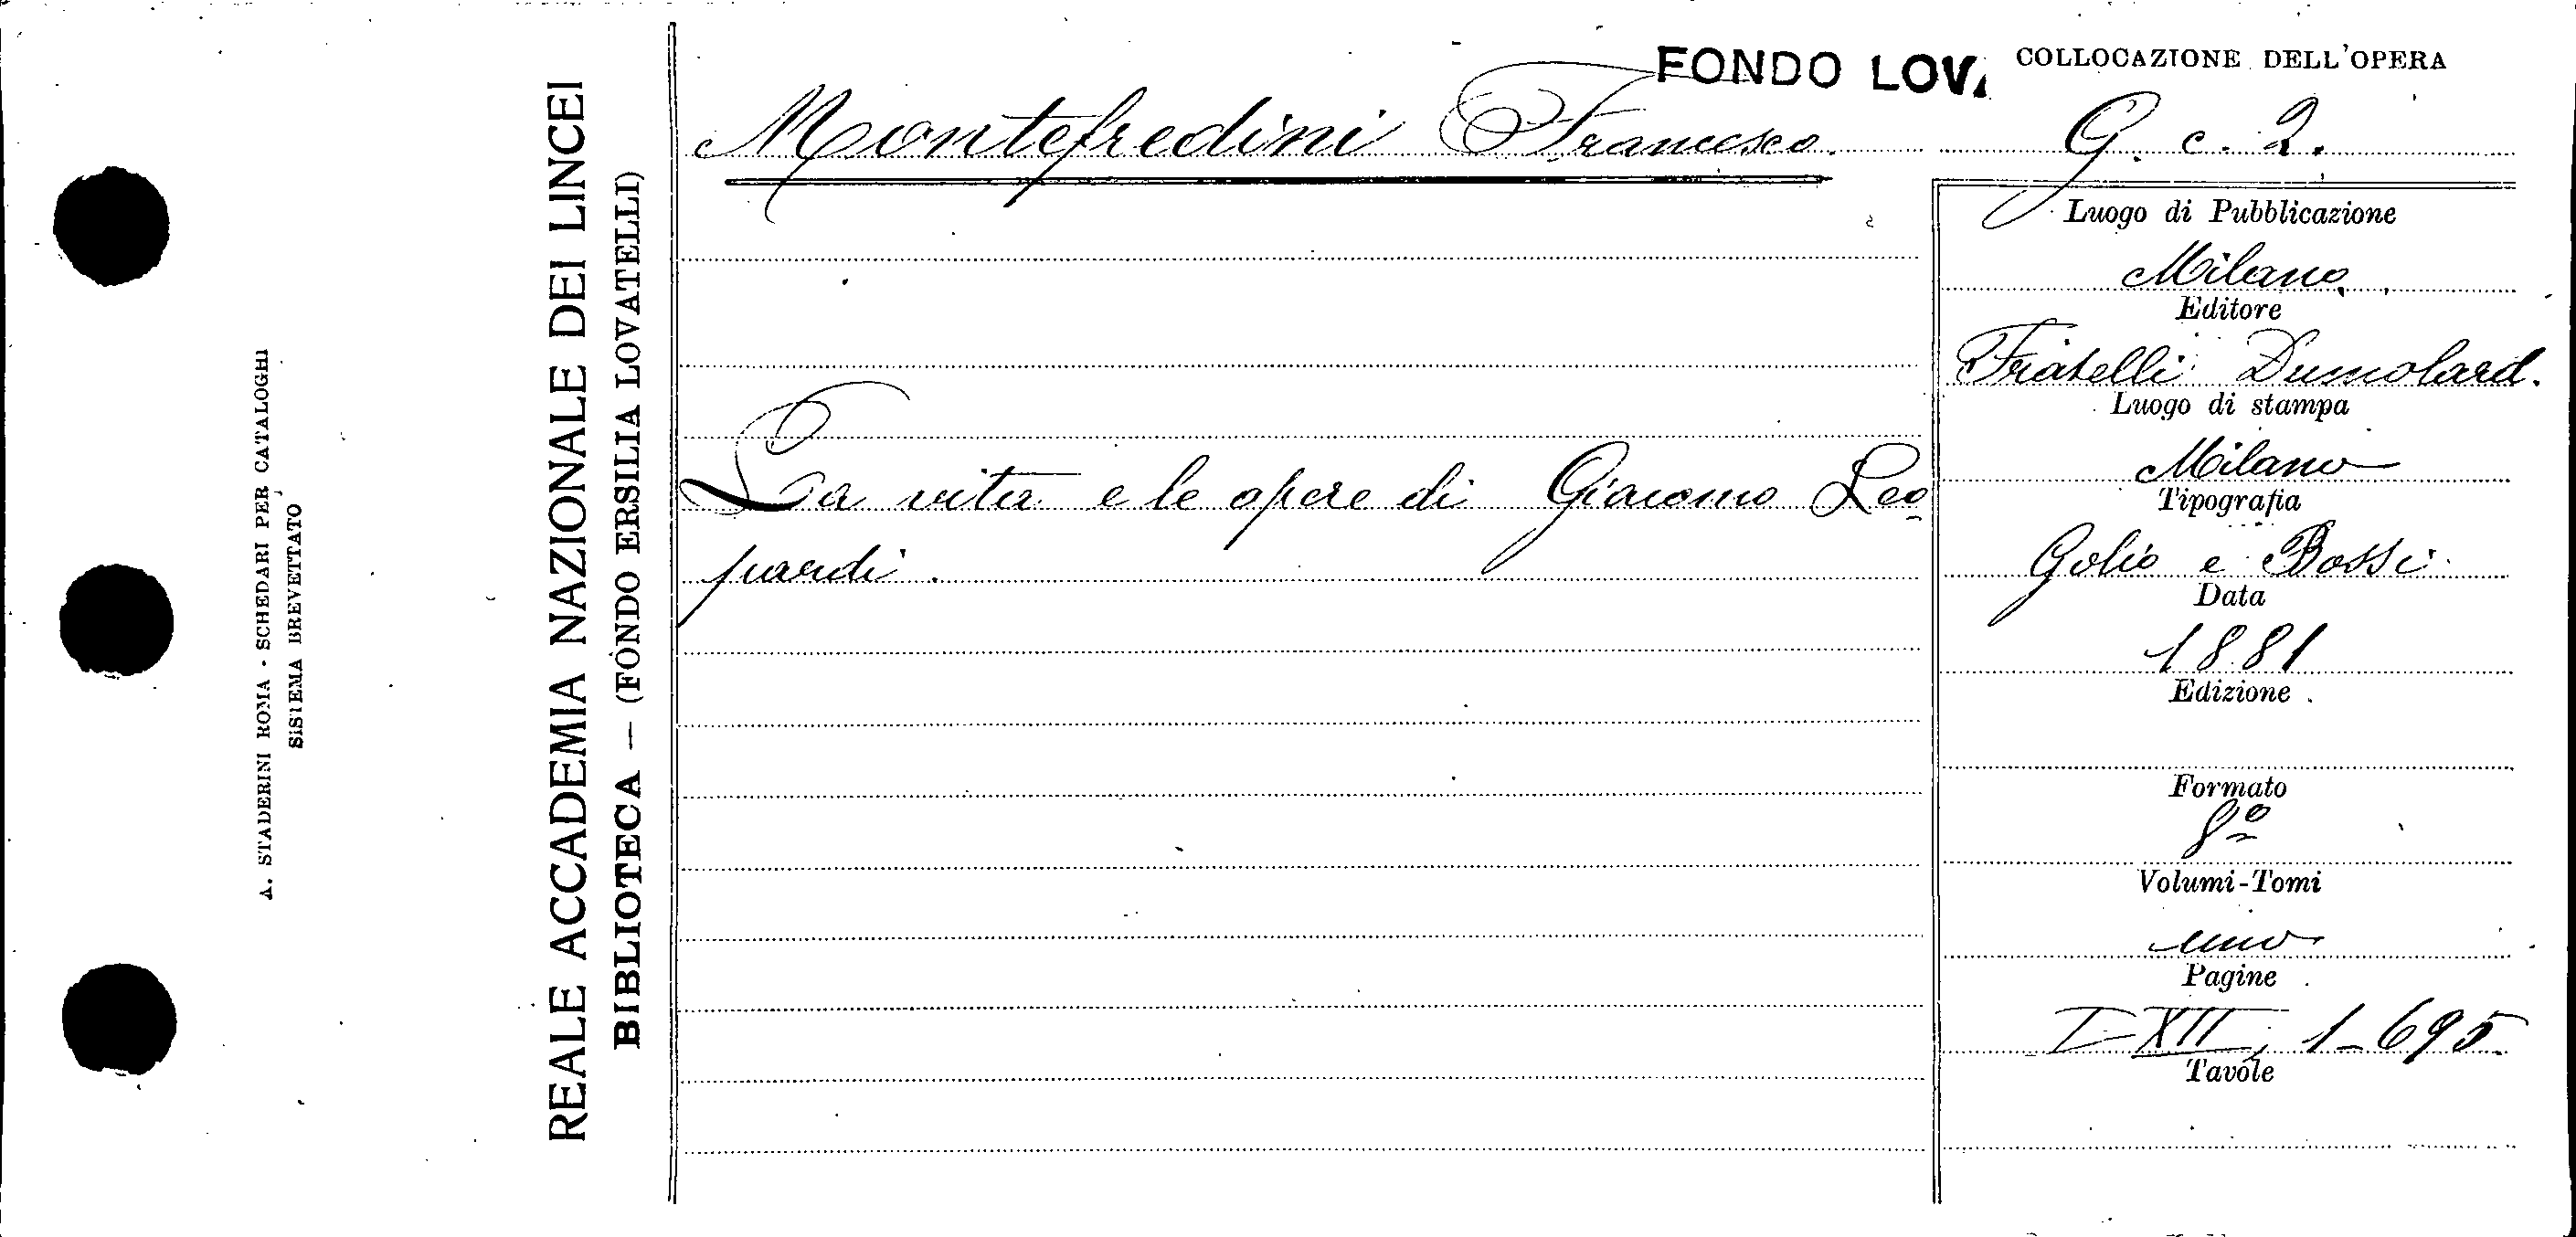 A. STADERINI ROMA - SCHEDARI PER CATALOGHI
SISTEMA BREVETTATO
REALE ACCADEMIA NAZIONALE DEI LINCEI
BIBLIOTECA — (FONDO ERSILIA LOVATELLI)
FONDO LOV
Montefredini Francesco.
La vita e le opere di Giacomo Leo-
pardi.
COLLOCAZIONE DELL'OPERA
G. c. 2.
Luogo di Pubblicazione
Milano
Editore
Fratelli Dumolard.
Luogo di stampa
Milano
Tipografia
Golio e Bossi
Data
1881
Edizione
Formato
8º
Volumi-Tomi
uno
Pagine
I-XII, 1-695.
Tavole